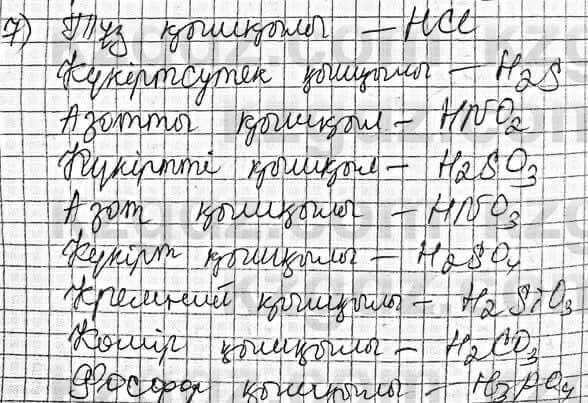 7) Тұз қышқылы – HCl
Күкіртсутек қышқылы – H₂S
Азотты қышқыл – HNO₂
Күкіртті қышқыл – H₂SO₃
Азот қышқылы – HNO₃
Күкірт қышқылы – H₂SO₄
Кремний қышқылы – H₂SiO₃
Көмір қышқылы – H₂CO₃
Фосфор қышқылы – H₃PO₄